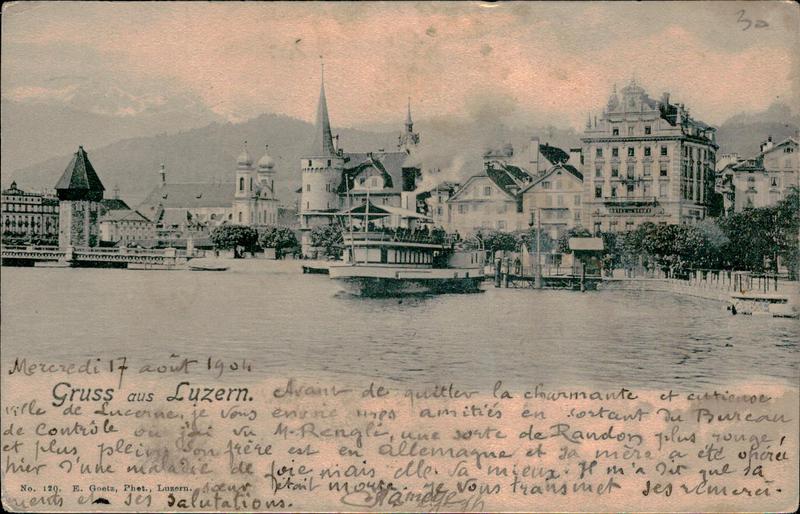 30
HOTEL DU CYGNE
Mercredi 17 août 1904
Gruss aus Luzern.
Avant de quitter la charmante et curieuse
ville de Lucerne, je vous envoie mes amitiés en sortant du Bureau
de Contrôle où j'ai vu M. Rengli, une sorte de Randon plus rougé,
et plus plein. Son frère est en Allemagne et sa mère a été opérée
hier d'une maladie de foie mais elle va mieux. Il m'a dit que sa
No. 120. E. Goetz, Phot., Luzern. sœur était morte. Je vous transmet ses remerci-
ments et ses salutations.